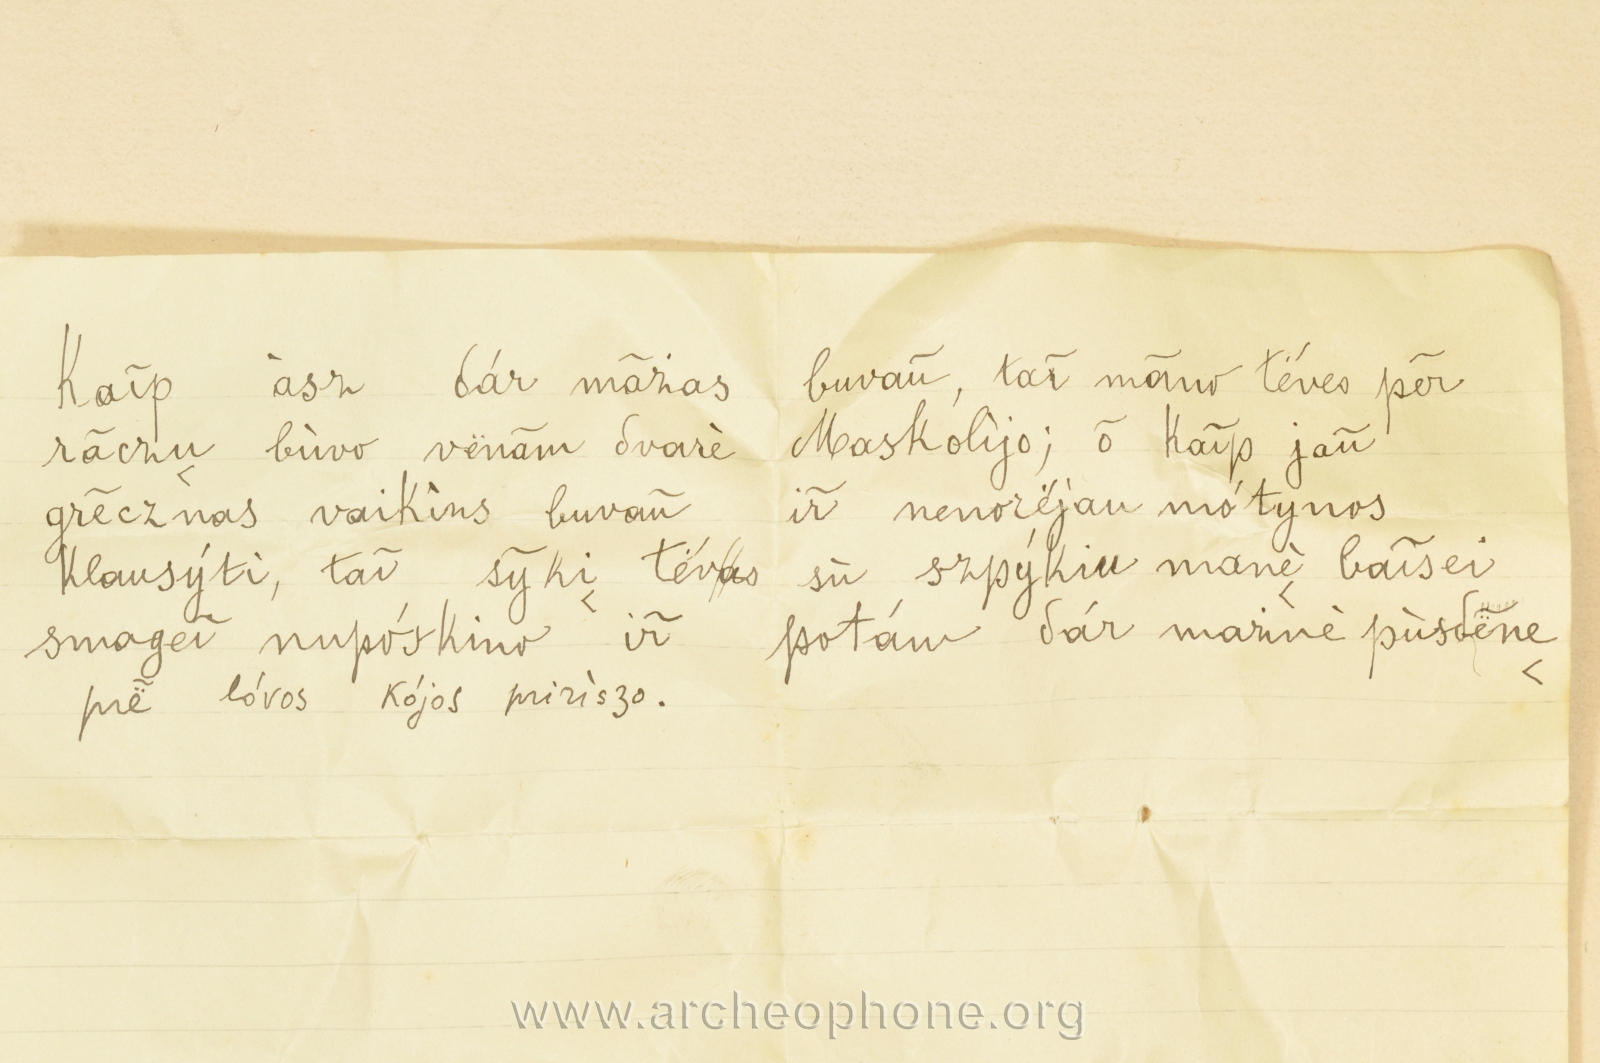 Kaĩp àsz dár mãżas buvaũ, taĩ māno tė́ves pėr
rãczų bùvo vënām dvarè Maskolìjo; õ kaĩp jaũ
grẽcznas vaikìns buvaũ iř nenorė́jau mótynos
klausýti, taĩ sỹkį tė́vas sù szpýkiu manę̀ baĩsei
smageĩ nupóskino iř potám dár manę̀ pùsdënę
prë̃ lóvos kójos pririszo.
www.archeophone.org